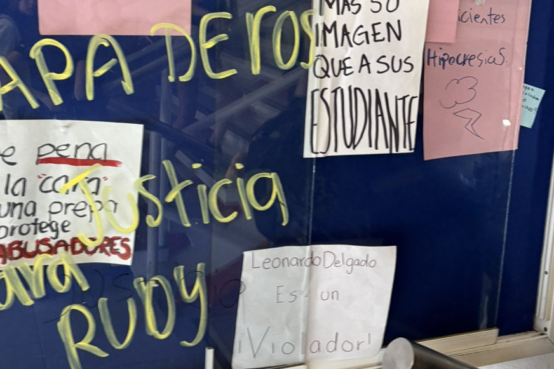 MAS SU
IMAGEN
QUE A SUS
ESTUDIANTE
icientes
Hipocresias.
APA DE ROS
e pena
la "cara"
una prepa
protege
ABUSADORES
Justicia
para
RUDY
Leonardo Delgado
Es un
¡Violador!